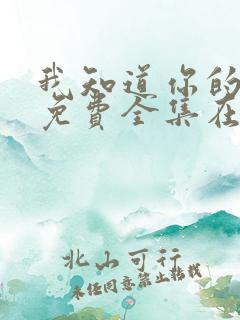 我知道你的
免费全集在
北山可行
未经同意禁止转载